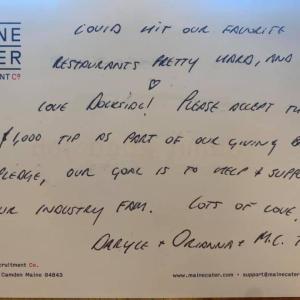 INE
COVID HIT OUR FAVORITE
ATER
RESTAURANTS PRETTY HARD, AND
ENT Co.
LOVE DOCKSIDE! PLEASE ACCEPT
$1,000 TIP AS PART OF OUR GIVING
PLEDGE, OUR GOAL IS TO HELP &
UR INDUSTRY FAM. LOTS OF LOVE,
DARYLE + ORIANNA + M.C. T
ecruitment Co.
Camden Maine 04843
www.mainecater.com • support@mainecater.